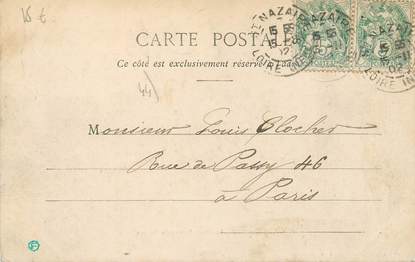 15 €
ST NAZAIRE
LOIRE INF
CARTE POSTALE
Ce côté est exclusivement réservé
44)
Monsieur Louis Clocher
Rue de Passy 46
à Paris